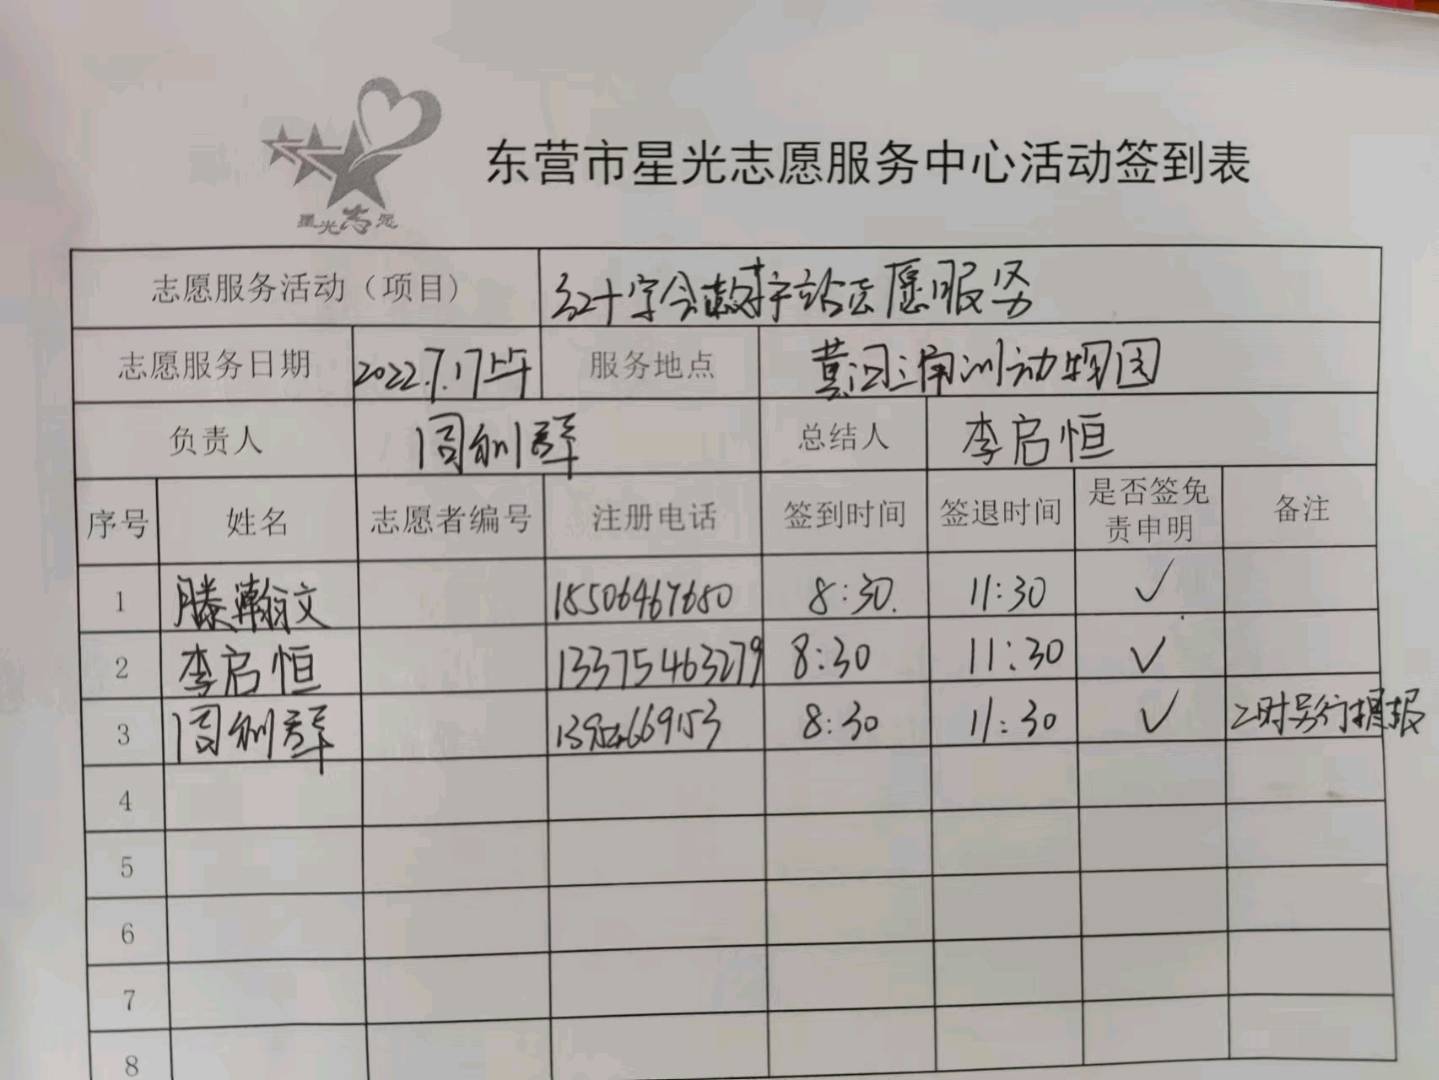 星光志愿
东营市星光志愿服务中心活动签到表
志愿服务活动（项目） 红十字会救护站志愿服务
志愿服务日期 2022.7.17上午 服务地点 黄河三角洲动物园
负责人 总结人 李启恒
序号 姓名 志愿者编号 注册电话 签到时间 签退时间 是否签免责申明 备注
1 滕瀚文 18506467680 8:30. 11:30 ✓
2 李启恒 13375463279 8:30 11:30 ✓
3 8:30 11:30 ✓
4
5
6
7
8